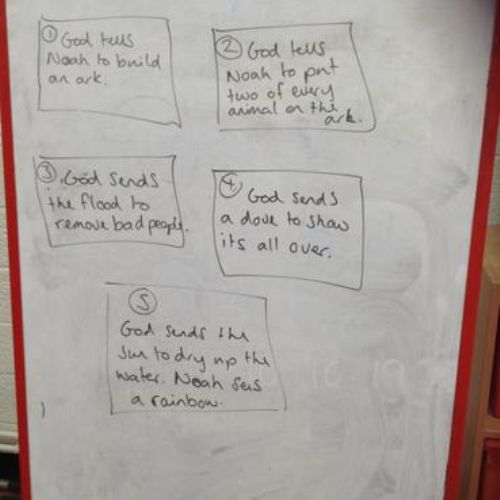 ① God tells
Noah to build
an ark.
② God tells
Noah to put
two of every
animal on the
ark.
③ God sends
the flood to
remove bad people.
④ God sends
a dove to show
its all over.
⑤
God sends the
sun to dry up the
water. Noah sees
a rainbow.